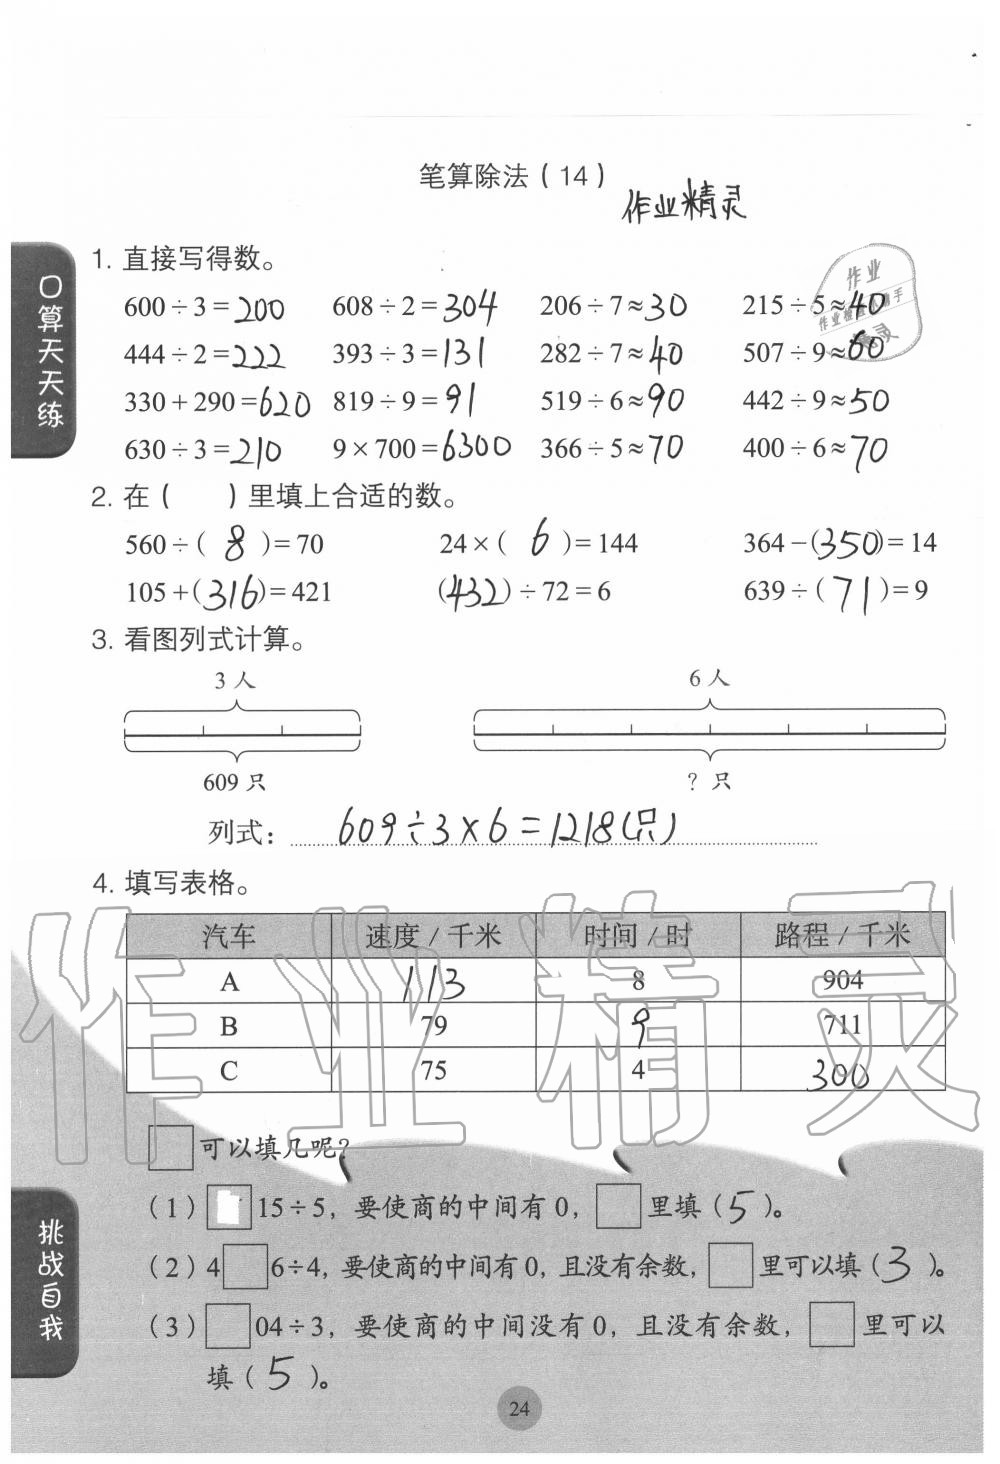 笔算除法(14)
作业精灵
口算天天练
1. 直接写得数。
作业
作业检查小助手
精灵
600÷3=200 608÷2=304 206÷7≈30 215÷5≈40
444÷2=222 393÷3=131 282÷7≈40 507÷9≈60
330+290=620 819÷9=91 519÷6≈90 442÷9≈50
630÷3=210 9×700=6300 366÷5≈70 400÷6≈70
2. 在( )里填上合适的数。
560÷(8)=70 24×(6)=144 364-(350)=14
105+(316)=421 (432)÷72=6 639÷(71)=9
3. 看图列式计算。
3人 6人
609只 ?只
列式: 609÷3×6=1218(只)
4. 填写表格。
汽车 速度/千米 时间/时 路程/千米
A 113 8 904
B 79 9 711
C 75 4 300
作业精灵
□可以填几呢?
挑战自我
(1)□15÷5,要使商的中间有0,□里填(5)。
(2)4□6÷4,要使商的中间有0,且没有余数,□里可以填(3)。
(3)□04÷3,要使商的中间没有0,且没有余数,□里可以
填(5)。
24